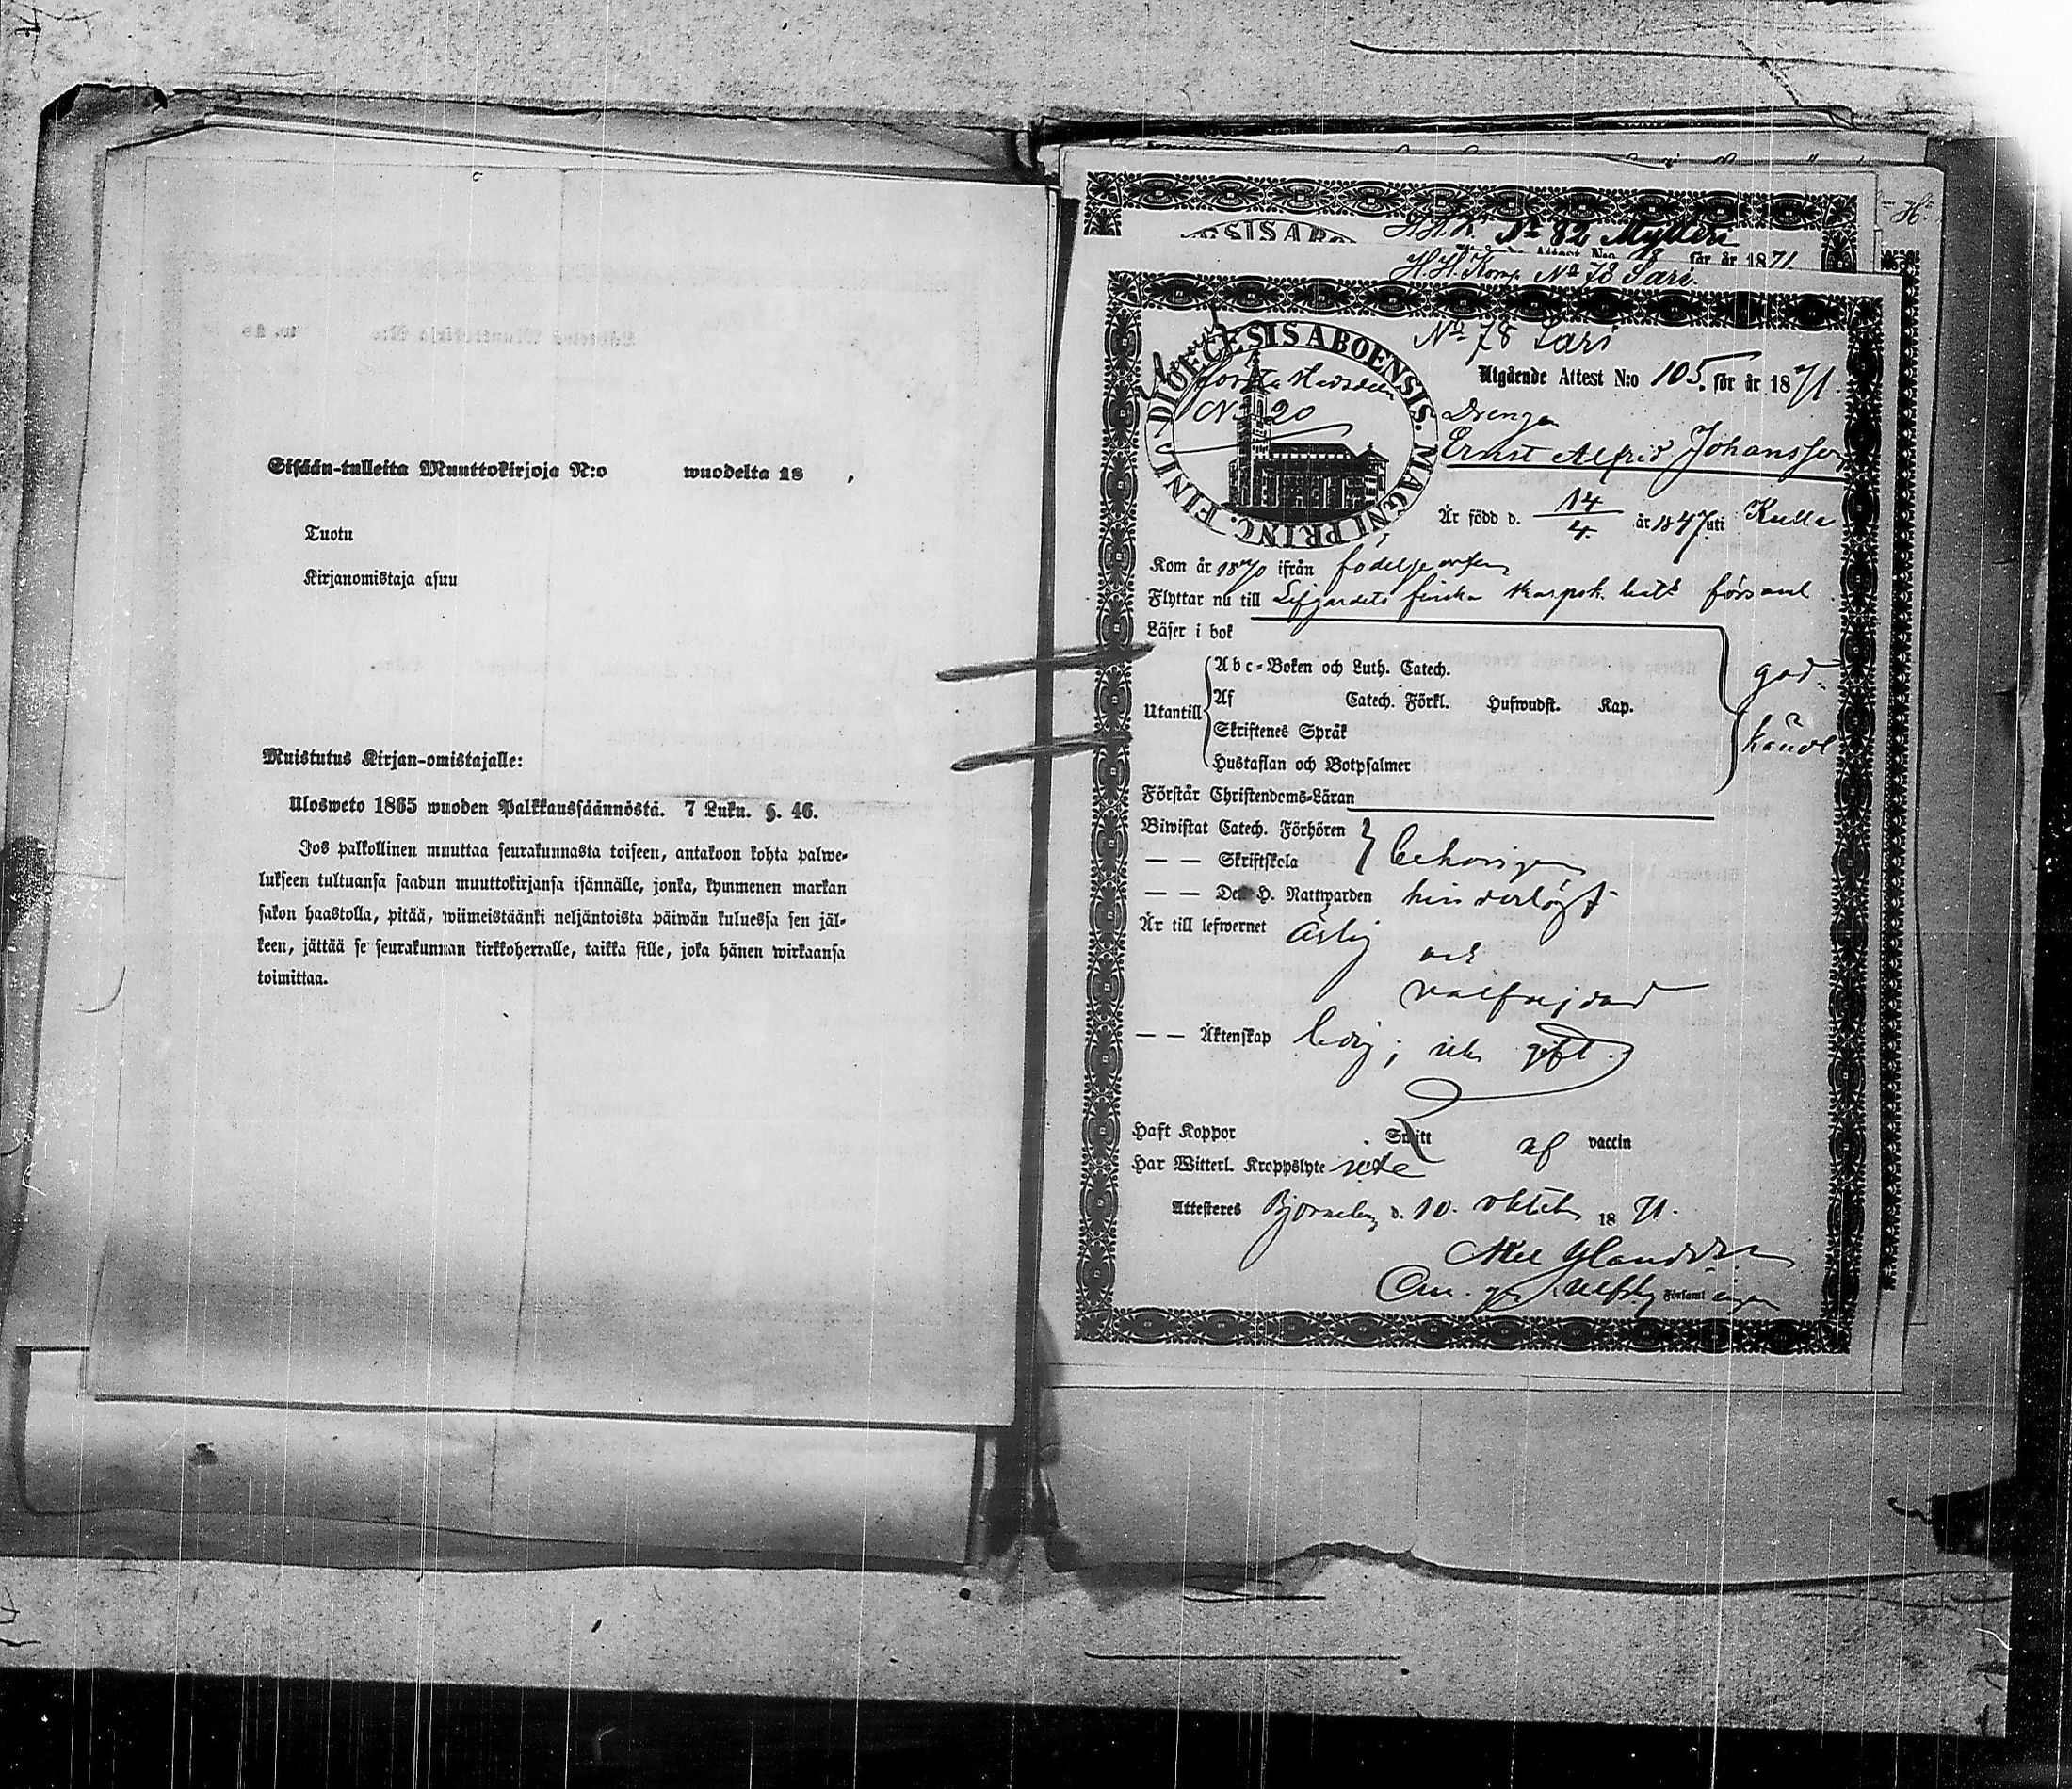 Sisään-tulleita Muuttokirjoja N:o wuodelta 18 ,
Tuotu
Kirjanomistaja asuu
Muistutus Kirjan-omistajalle:
Ulosweto 1865 wuoden Palkkaussäännöstä. 7 Luku. §. 46.
Jos palkollinen muuttaa seurakunnasta toiseen, antakoon kohta palwe-
lukseen tultuansa saadun muuttokirjansa isännälle, jonka, kymmenen markan
sakon haastolla, pitää, wiimeistäänki neljäntoista päiwän kuluessa sen jäl-
keen, jättää se seurakunnan kirkkoherralle, taikka sille, joka hänen wirkaansa
toimittaa.
H. H. K. No 82 Myllin
för år 1871.
H. H. Komp. No 78 Sari.
No 78 Sari
DIOECESIS ABOENSIS. MAGNI PRINC. FINL.
Stadsdelen
No 20
Utgående Attest N:o 105. för år 1871.
Drengen
Ernst Alfrid Johansson
Är född d. 14/4. år 1847 uti Kulla
Kom år 1870 ifrån födelseorten
Flyttar nu till Lifgardets finska skarpsk. batt församl.
Läser i bok
Utantill
Abc-Boken och Luth. Catech.
Af Catech. Förkl. Hufwudst. Kap.
Skriftenes Språk
Hustaflan och Botpsalmer
god-
känd
Förstår Christendoms-Läran
Biwistat Catech. Förhören
— — Skriftskola behörigen
— — Den H. Nattwarden hinderlöst
Är till lefwernet ärlig
och
välfrejdad
— — Äktenskap ledig; icke gift.
Haft Koppor Smitt af vaccin
Har Witterl. Kroppslyte icke
Attesteres Björneborg d. 10. oktober 1871.
Församl